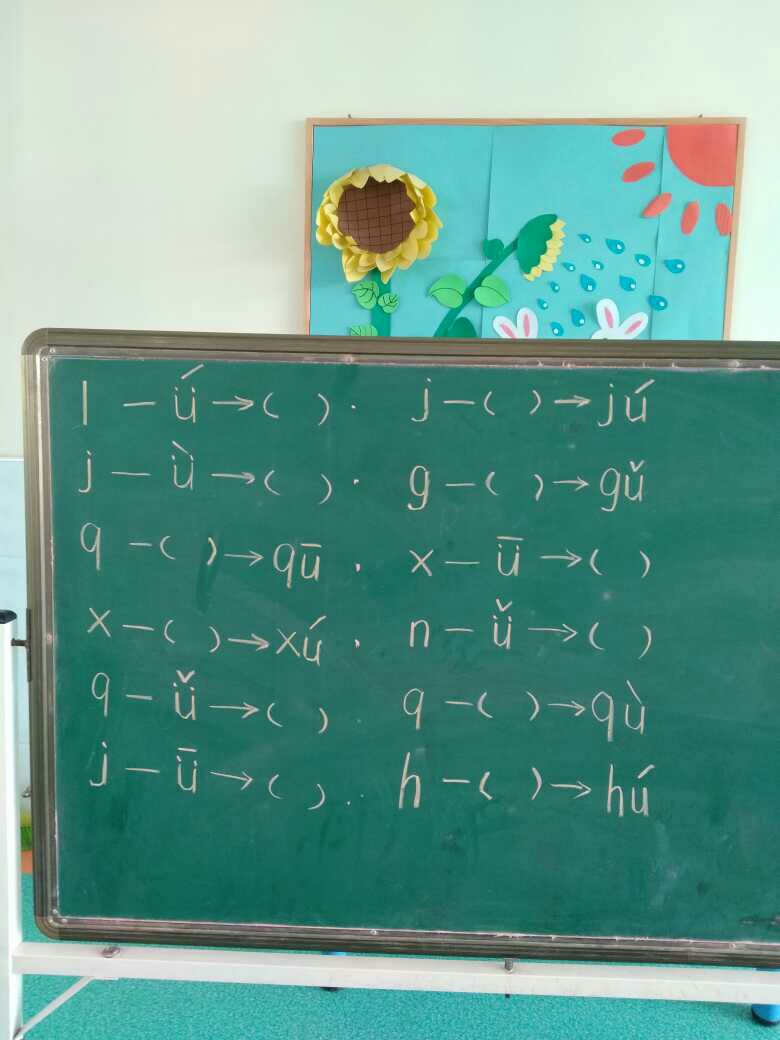 l － ǘ → (  ) . j － (  ) → jú
j － ǜ → (  ) . g － (  ) → gǔ
q － (  ) → qū . x － ǖ → (  )
x － (  ) → xú . n － ǚ → (  )
q － ǚ → (  ) q － (  ) → qù
j － ǖ → (  ) . . h － (  ) → hú